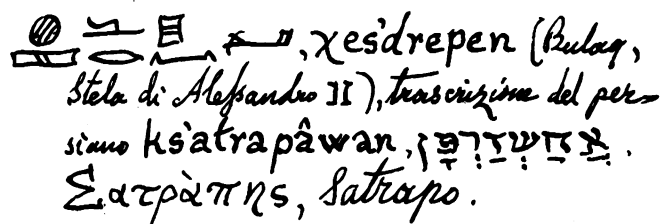 , χes'drepen (Bulaq,
Stela di Alessandro II), trascrizione del per=
siano ks'atrapâwan, אֲחַשְׁדַּרְפָּן.
Σατρὰπης, Satrapo.